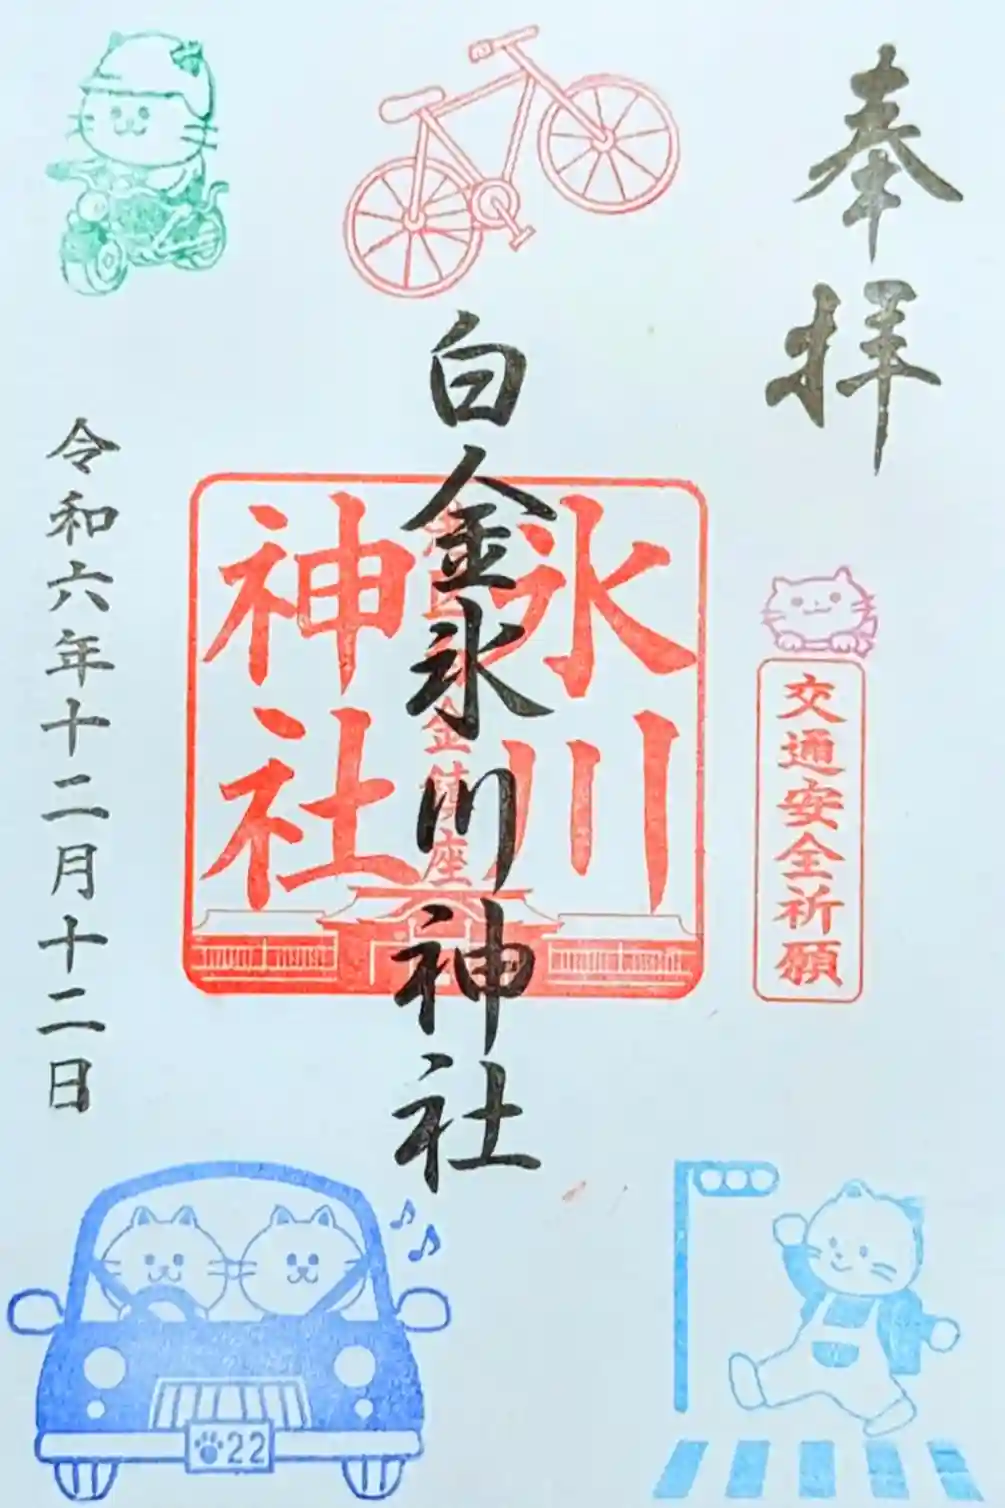 奉拝
交通安全祈願
氷川
神社
白金氷川神社
令和六年十二月十二日
22